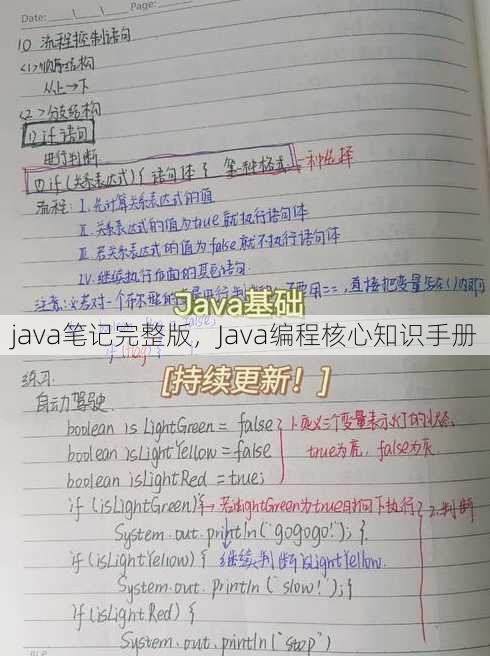 Date: \ \ Page:
10 流程控制语句
<1>顺序结构
从上→下
<2>分支结构
1) if 语句
进行判断
(1) if (关系表达式) { 语句体 } 第一种格式 一种选择
流程: I. 先计算关系表达式的值
II. 关系表达式的值为true 就执行语句体
III. 若关系表达式的值为 false 就不执行语句体
IV. 继续执行后面的其它语句.
注意:
不要用==, 直接把变量写在()内即可
Java基础
java笔记完整版，Java编程核心知识手册
[持续更新！]
练习.
自动驾驶.
boolean is LightGreen = false; 1.定义三个变量表示灯的状态.
boolean isLight Yellow = false true为亮, false为灭
boolean isLight Red = true;
if (isLightGreen){ 若isLightGreen为true时向下执行 2.判断
System.out.println("gogogo!"); }
if (isLightYellow) { 继续判断isLightYellow.
System.out.println ("slow!"); }
if(isLight Red) {
System.out.println("stop")